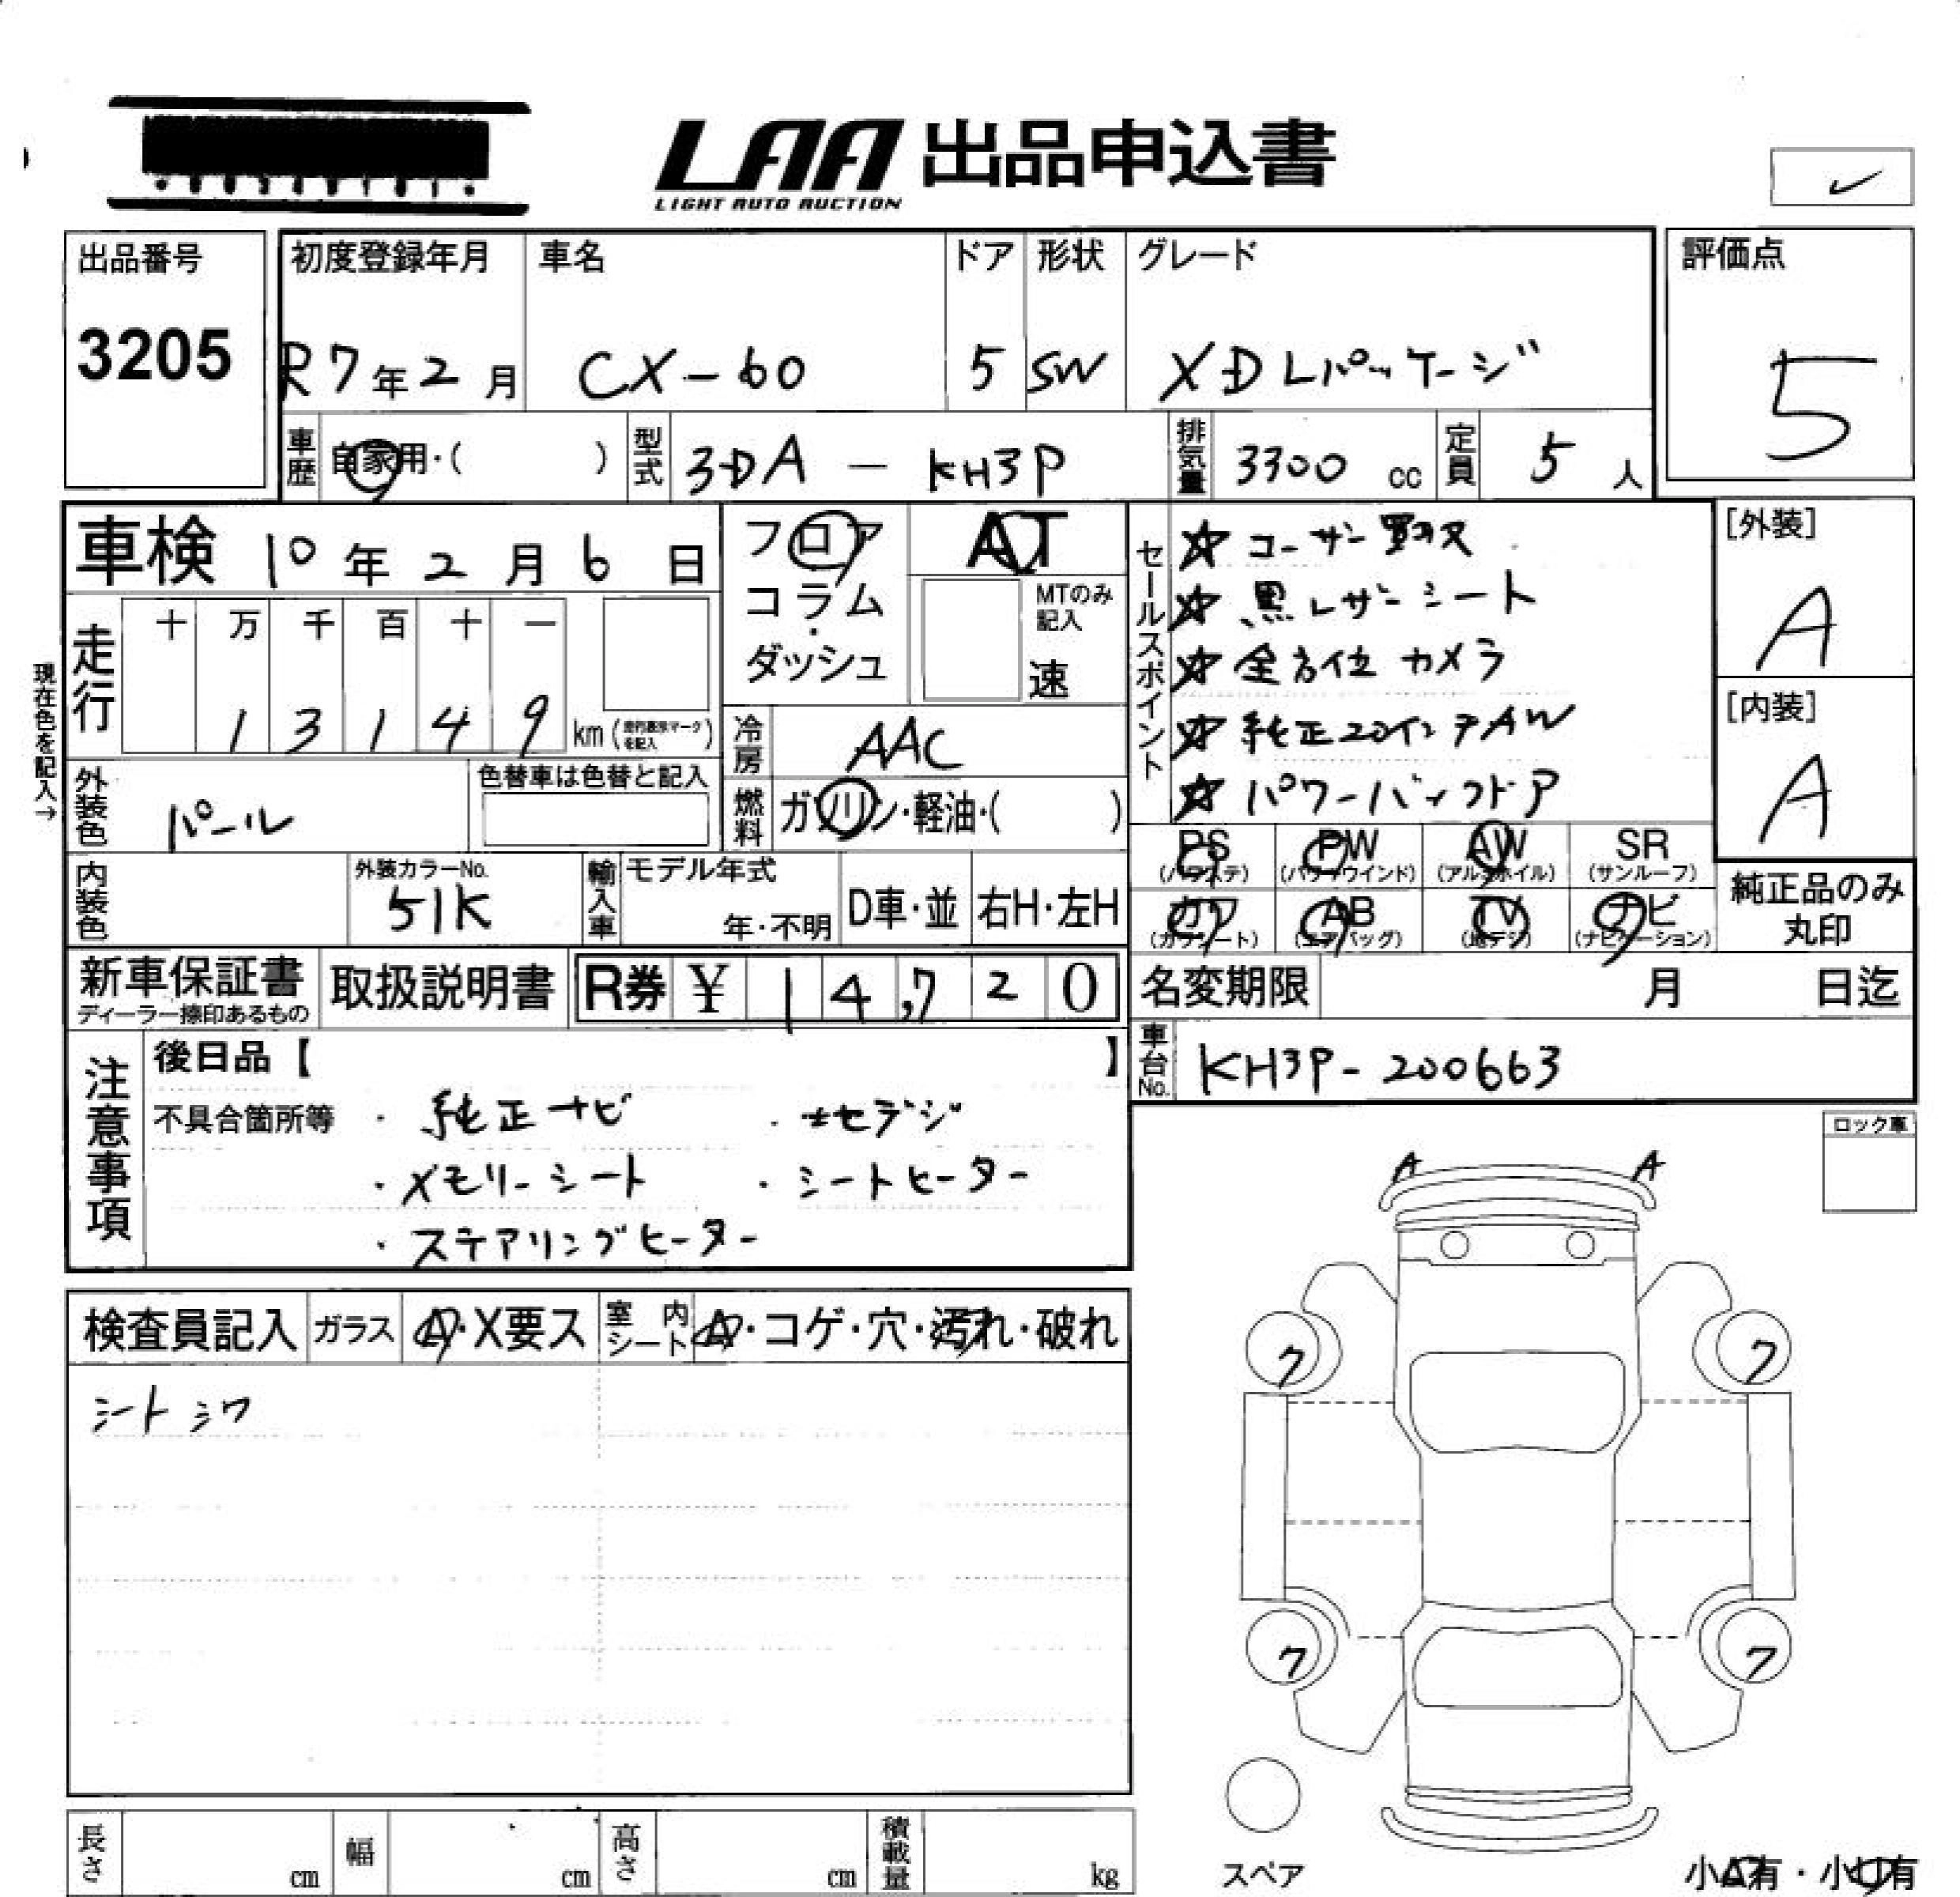 LAA 出品申込書
LIGHT AUTO AUCTION
出品番号
3205
初度登録年月
R7年2月
車名
CX-60
ドア
5
形状
SW
グレード
XD Lパッケージ
評価点
5
車歴 自家用・( )
型式 3DA - KH3P
排気量 3300 cc
定員 5 人
車検 10年2月6日
フロア
コラム
・
ダッシュ
AT
MTのみ
記入
速
セールスポイント
☆ ユーザー買取
☆ 黒レザーシート
☆ 全方位カメラ
☆ 純正20インチAW
☆ パワーバックドア
[外装]
A
[内装]
A
現在色を記入→
走行
十 万 千 百 十 一
1 3 1 4 9
km(走行表示マークを記入)
冷房 AAC
燃料 ガソリン・軽油・( )
外装色 パール
色替車は色替と記入
内装色
外装カラーNo.
51K
輸入車
モデル年式
年・不明
D車・並
右H・左H
PS
(パワステ)
PW
(パワーウインド)
AW
(アルミホイル)
SR
(サンルーフ)
カワ
(カワシート)
AB
(エアバッグ)
TV
(地デジ)
ナビ
(ナビゲーション)
純正品のみ
丸印
新車保証書
ディーラー捺印あるもの
取扱説明書
R券 ¥ 14,720
名変期限 月 日迄
車台No. KH3P-200663
注意事項
後日品【 】
不具合箇所等
・純正ナビ ・地デジ
・メモリーシート ・シートヒーター
・ステアリングヒーター
ロック車
検査員記入
ガラス A・X要ス
室内シート A・コゲ・穴・汚れ・破れ
シートシワ
A A
ク ク
ク ク
スペア
小A有・小U有
長さ cm
幅 cm
高さ cm
積載量 kg